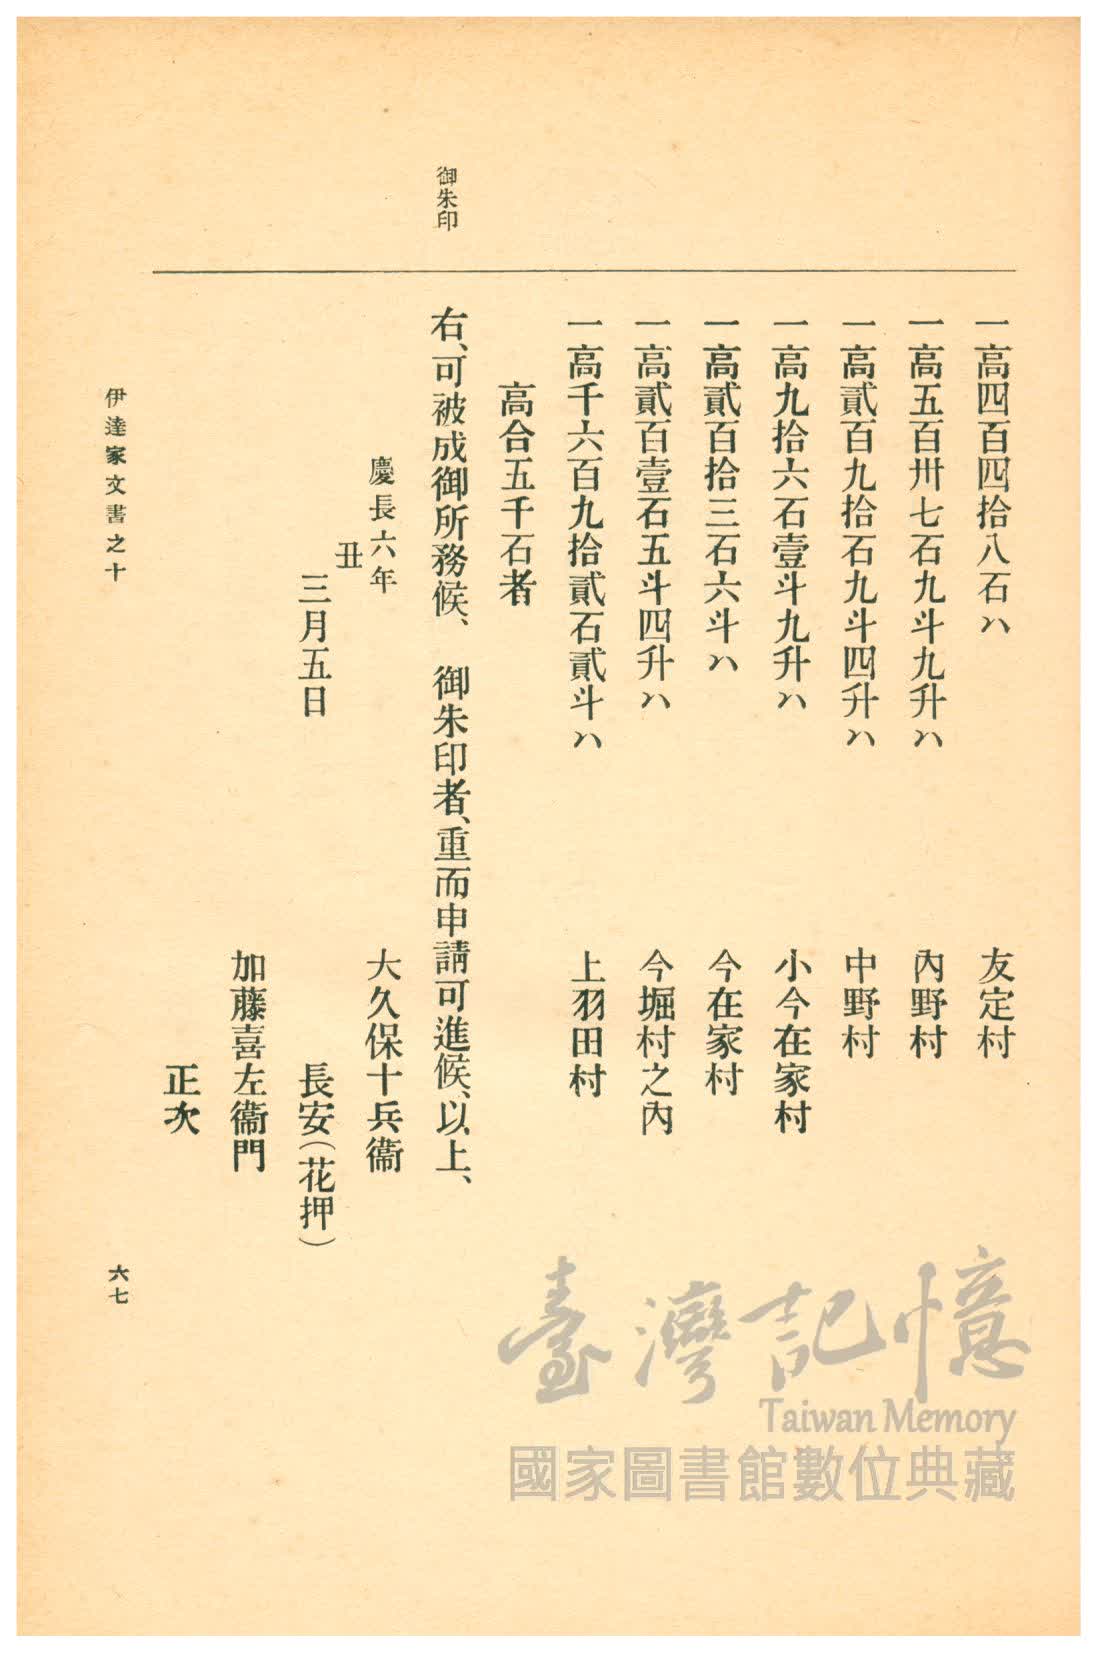 御朱印
一高四百四拾八石ハ　友定村
一高五百卅七石九斗九升ハ　內野村
一高貳百九拾石九斗四升ハ　中野村
一高九拾六石壹斗九升ハ　小今在家村
一高貳百拾三石六斗ハ　今在家村
一高貳百壹石五斗四升ハ　今堀村之內
一高千六百九拾貳石貳斗ハ　上羽田村
高合五千石者
右、可被成御所務候、　御朱印者、重而申請可進候、以上、
慶長六年　大久保十兵衞
丑
三月五日　長安(花押)
加藤喜左衞門
正次
伊達家文書之十　六七
臺灣記憶
Taiwan Memory
國家圖書館數位典藏